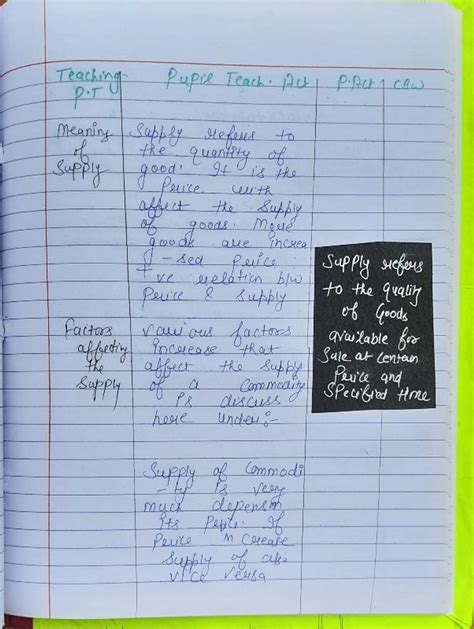 Teaching P.T
Pupil Teach. Act
P.Act
CBW
Meaning
of
Supply
Supply refers to
the quantity of
good. It is the
Price with
affect the Supply
of goods. More
goods are increa
-sed Price.
+ve relation b/w
Price & Supply
Supply refers
to the quality
of Goods
available for
Sale at certain
Price and
Specified time
Factors
affecting
the
Supply
various factors
increase that
affect the Supply
of a Commodity
is discuss
here under:-
Supply of Commodi
-ty is very
much depends
its Price. If
Price increase
Supply of also
vice versa